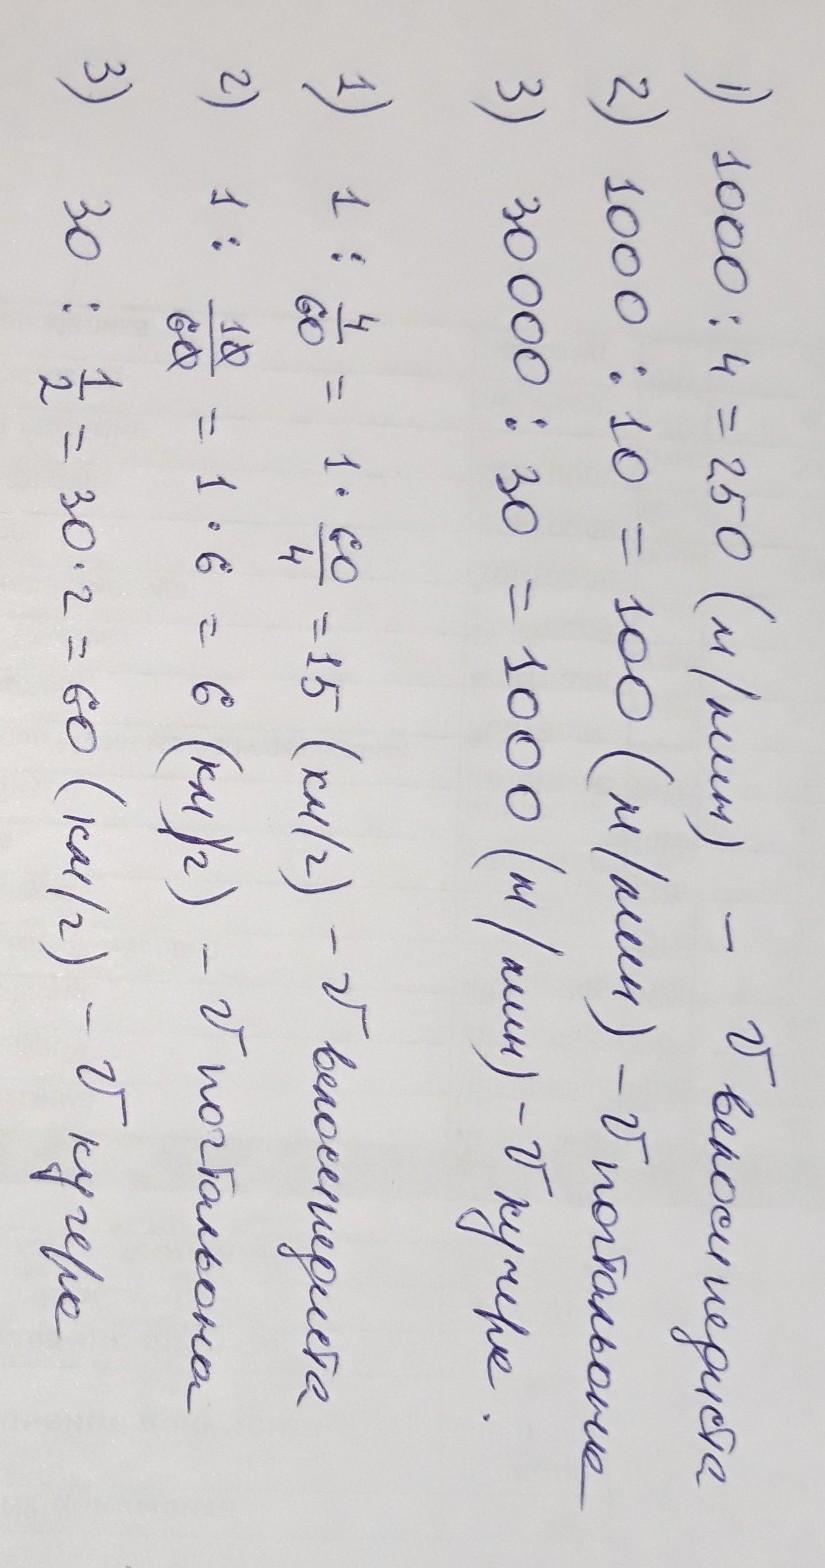 1) 1000 : 4 = 250 (м/мин) - v велосипедиста
2) 1000 : 10 = 100 (м/мин) - v почтальона
3) 30000 : 30 = 1000 (м/мин) - v кучера.
1) 1 : 4/60 = 1 · 60/4 = 15 (км/ч) - v велосипедиста
2) 1 : 10/60 = 1 · 6 = 6 (км/ч) - v почтальона
3) 30 : 1/2 = 30 · 2 = 60 (км/ч) - v кучера